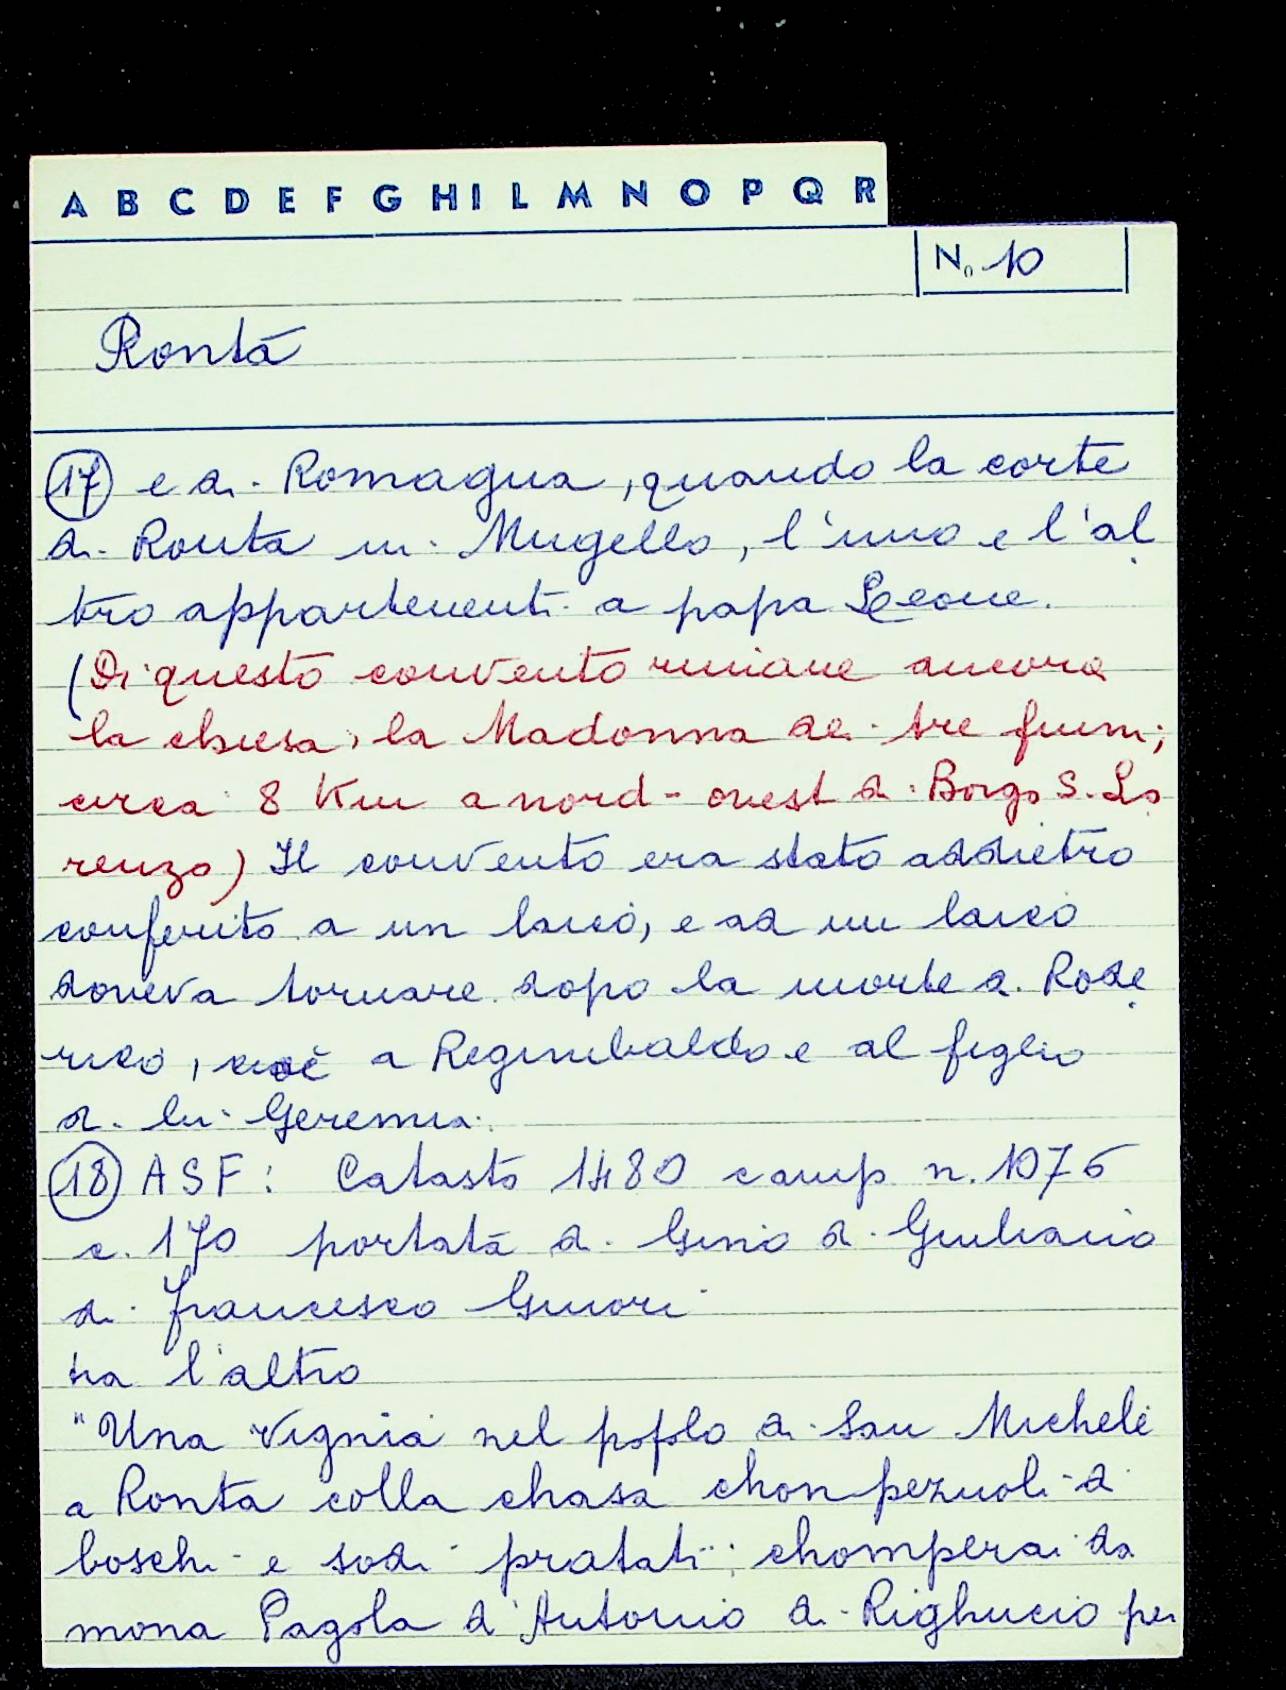 A B C D E F G H I L M N O P Q R
No 10
Ronta
17 e di Romagna, quando la corte
di Ronta in Mugello, l'uno e l'al
tro appartenenti a papa Leone.
(Di questo convento rimane ancora
la chiesa, la Madonna dei tre fiumi,
circa 8 Km a nord-ovest di Borgo S. Lo
renzo) Il convento era stato addietro
conferito a un laico, e ad un laico
doveva tornare dopo la morte di Rode
rico, cioè a Regimbaldo e al figlio
di lui Geremia.
18 ASF: Catasto 1480 camp n. 1076
c. 170 portata di Gino di Giuliano
di Francesco Ginori
tra l'altro
"Una vignia nel popolo di San Michele
a Ronta colla chasa chon pezuoli di
boschi e sodi pratati; chomperai da
mona Pagola d'Antonio di Righucio per